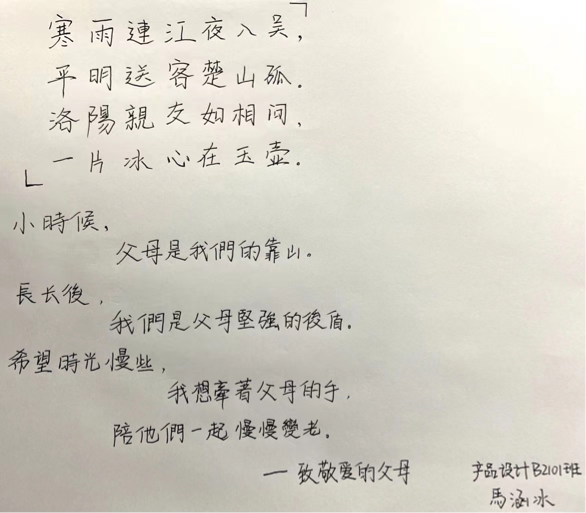 寒雨連江夜入吴，
平明送客楚山孤．
洛陽親友如相问，
一片冰心在玉壺．
小時候，
父母是我們的靠山。
長长後，
我們是父母堅強的後盾．
希望時光慢些，
我想牽著父母的手，
陪他們一起慢慢變老．
——致敬爱的父母
产品设计B2101班
馬涵冰